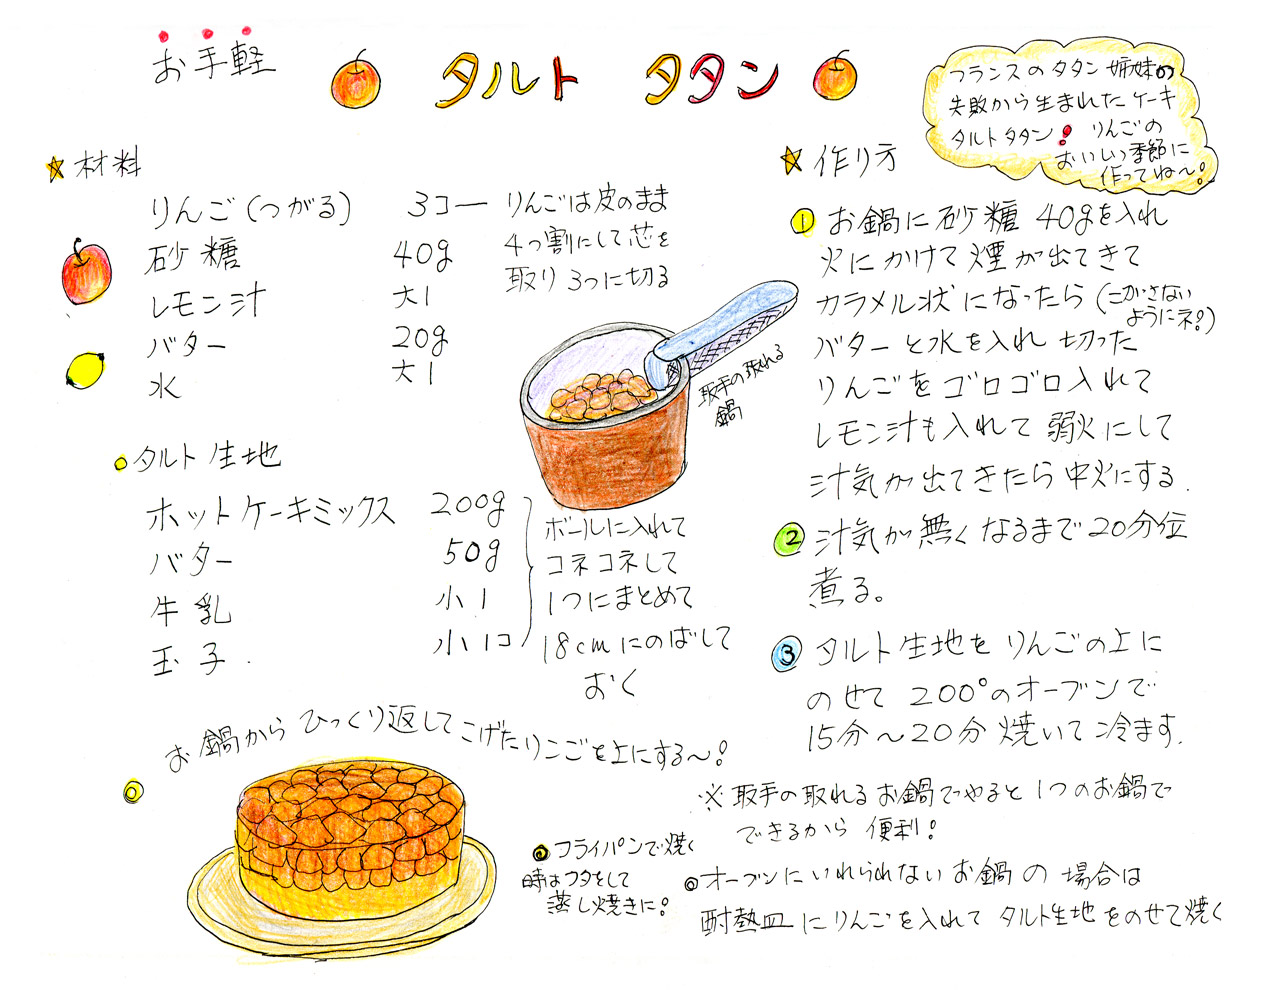 お手軽
タルト タタン
フランスのタタン姉妹の
失敗から生まれたケーキ
タルトタタン! りんごの
おいしい季節に
作ってね〜!
材料
りんご(つがる) 3コ
砂糖 40g
レモン汁 大1
バター 20g
水 大1
りんごは皮のまま
4つ割にして芯を
取り3つに切る
取手の取れる
鍋
タルト生地
ホットケーキミックス 200g
バター 50g
牛乳 小1
玉子 小1コ
ボールに入れて
コネコネして
1つにまとめて
18cmにのばして
おく
作り方
① お鍋に砂糖40gを入れ
火にかけて煙が出てきて
カラメル状になったら(こがさない
ようにネ!)
バターと水を入れ切った
りんごをゴロゴロ入れて
レモン汁も入れて弱火にして
汁気が出てきたら中火にする.
② 汁気が無くなるまで20分位
煮る。
③ タルト生地をりんごの上に
のせて200°のオーブンで
15分〜20分焼いて冷ます.
※取手の取れるお鍋でやると1つのお鍋で
できるから便利!
◎オーブンにいれられないお鍋の場合は
耐熱皿にりんごを入れてタルト生地をのせて焼く
お鍋からひっくり返してこげたりんごを上にする〜!
フライパンで焼く
時はフタをして
蒸し焼きに!